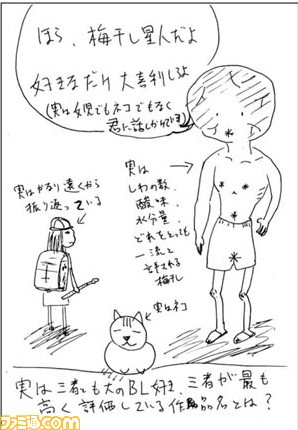 ほら、梅干し星人だよ
好きなだけ大喜利しろよ
(実は幼児でもネコでもなく
君に話しかけてます)
実はかなり遠くから
振り返っている
実は
しわの数、
酸味、
水分量、
どれをとっても
一流と
言われる
梅干し
実はネコ
実は三者とも大のBL好き。三者が最も
高く評価している作品名とは?
ファミ通.com